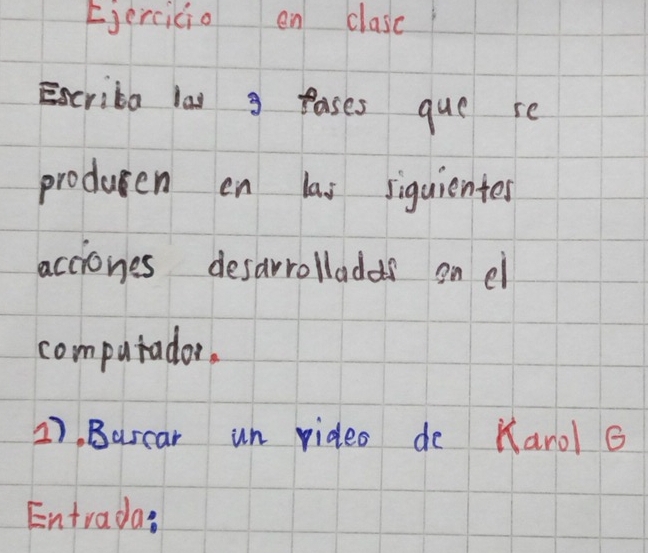 Ejercicio en clase
Escriba las 3 fases que se
producen en las siguientes
acciones desarrolladas en el
computador.
1). Buscar un video de Karol G
Entrada: